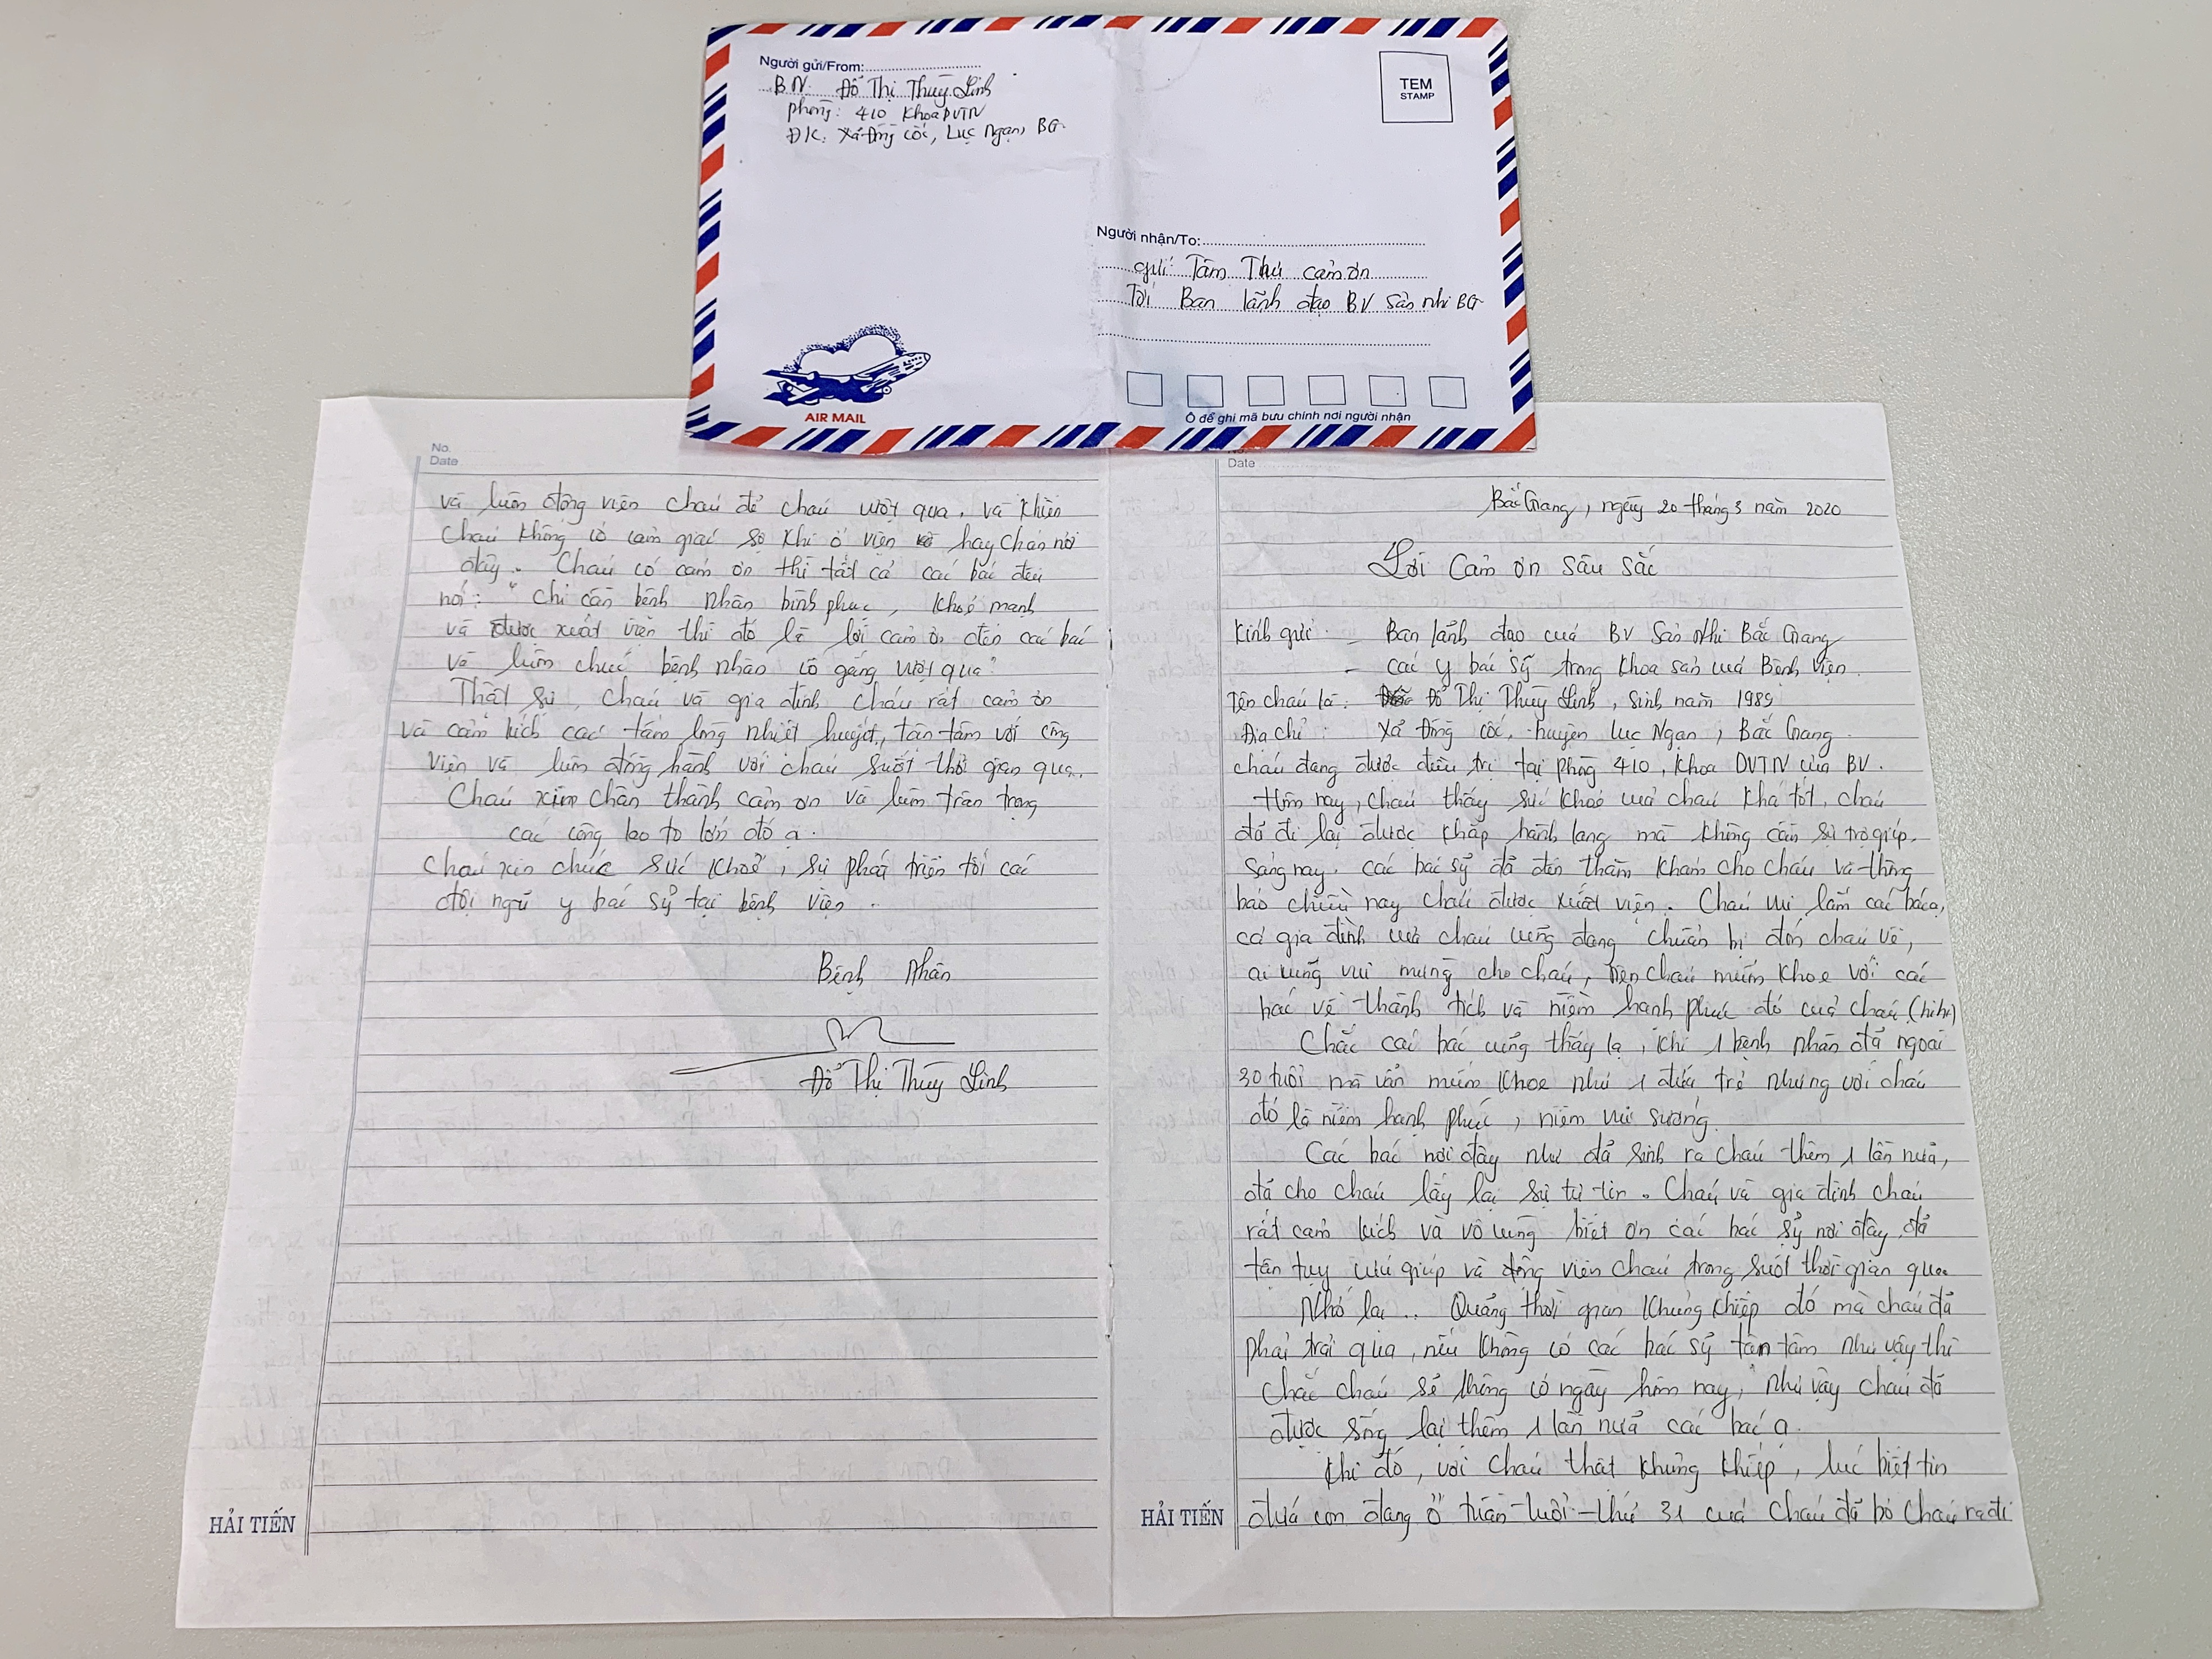 Người gửi/From:
BN: Đỗ Thị Thùy Linh
phòng: 410 Khoa DVTN
Đ/C: Xã Đồng Cốc, Lục Ngạn, BG
TEM
STAMP
Người nhận/To:
gửi: Tâm Thư cảm ơn
Tới Ban lãnh đạo BV Sản nhi BG
AIR MAIL
Ô để ghi mã bưu chính nơi người nhận
No.
Date
và luôn động viên cháu để cháu vượt qua, và khiến
cháu không có cảm giác sợ khi ở viện hay chán nơi
đây. Cháu có cảm ơn thì tất cả các bác đều
nói: "chỉ cần bệnh nhân bình phục, khoẻ mạnh
và được xuất viện thì đó là lời cảm ơn đến các bác
và luôn chúc bệnh nhân cố gắng vượt qua"
Thật sự, cháu và gia đình cháu rất cảm ơn
và cảm kích các tấm lòng nhiệt huyết, tận tâm với công
viện và luôn đồng hành với cháu suốt thời gian qua.
Cháu xin chân thành cảm ơn và luôn trân trọng
các công lao to lớn đó ạ.
Cháu xin chúc sức khoẻ, sự phát triển tới các
đội ngũ y bác sỹ tại bệnh viện.
Bệnh Nhân
Đỗ Thị Thùy Linh
HẢI TIẾN
No.
Date
Bắc Giang, ngày 20 tháng 3 năm 2020
Lời Cảm ơn sâu sắc
Kính gửi: - Ban lãnh đạo của BV Sản Nhi Bắc Giang
- các y bác sỹ trong khoa sản của Bệnh viện.
Tên cháu là: Đỗ Thị Thùy Linh, sinh năm 1989
Địa chỉ: Xã Đồng cốc, huyện Lục Ngạn, Bắc Giang.
cháu đang được điều trị tại phòng 410, khoa DVTN của BV.
Hôm nay, cháu thấy sức khoẻ của cháu khá tốt, cháu
đã đi lại được khắp hành lang mà không cần sự trợ giúp.
Sáng nay. các bác sỹ đã đến thăm khám cho cháu và thông
báo chiều nay cháu được xuất viện. Cháu vui lắm các bác ạ,
cả gia đình của cháu cũng đang chuẩn bị đón cháu về,
ai cũng vui mừng cho cháu, nên cháu muốn khoe với các
bác về thành tích và niềm hạnh phúc đó của cháu (hihi)
Chắc các bác cũng thấy lạ, khi 1 bệnh nhân đã ngoài
30 tuổi mà vẫn muốn khoe như 1 đứa trẻ nhưng với cháu
đó là niềm hạnh phúc, niềm vui sướng.
Các bác nơi đây như đã sinh ra cháu thêm 1 lần nữa,
đã cho cháu lấy lại sự tự tin. Cháu và gia đình cháu
rất cảm kích và vô cùng biết ơn các bác sỹ nơi đây, đã
tận tụy cứu giúp và động viên cháu trong suốt thời gian qua
Nhớ lại.. Quảng thời gian khủng khiếp đó mà cháu đã
phải trải qua, nếu không có các bác sỹ tận tâm như vậy thì
chắc cháu sẽ không có ngày hôm nay, như vậy cháu đã
được sống lại thêm 1 lần nữa các bác ạ.
Khi đó, với cháu thật khủng khiếp, lúc biết tin
đứa con đang ở tuần tuổi thứ 31 của cháu đã bỏ cháu ra đi
HẢI TIẾN